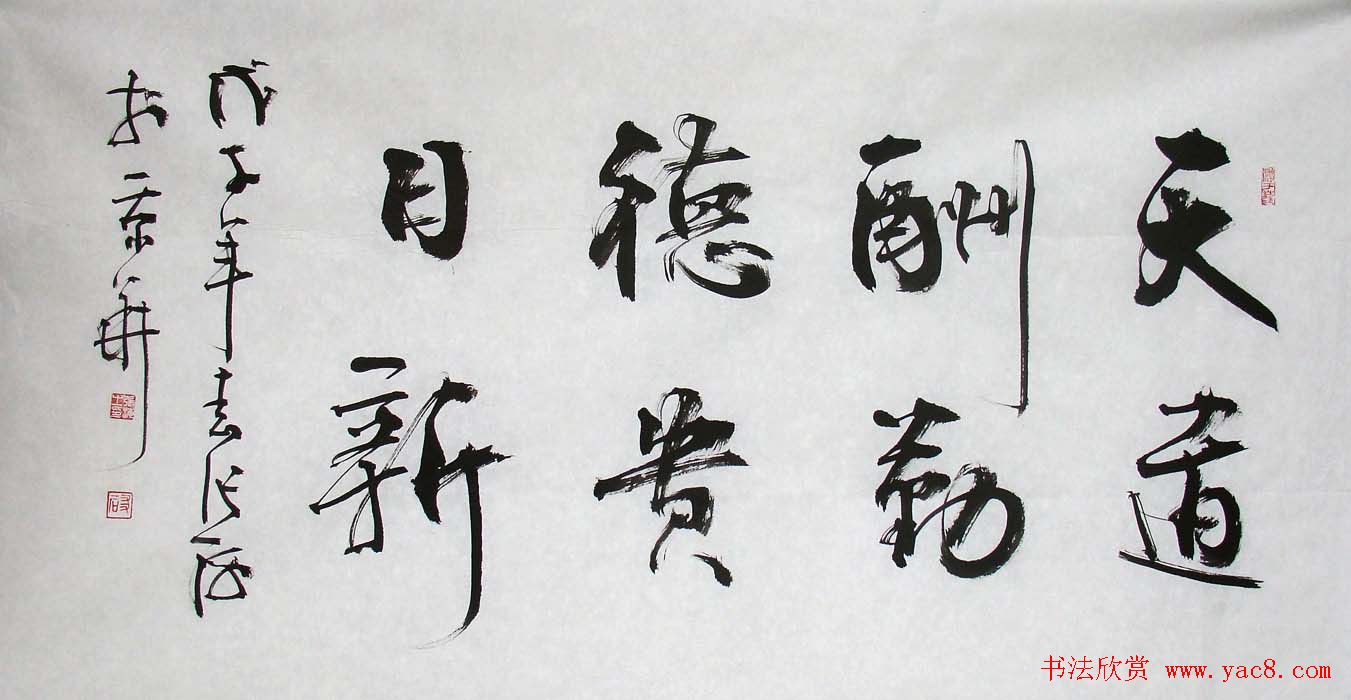 天道
酬勤
德贵
日新
戊子年春
于京華
书法欣赏 www.yac8.com